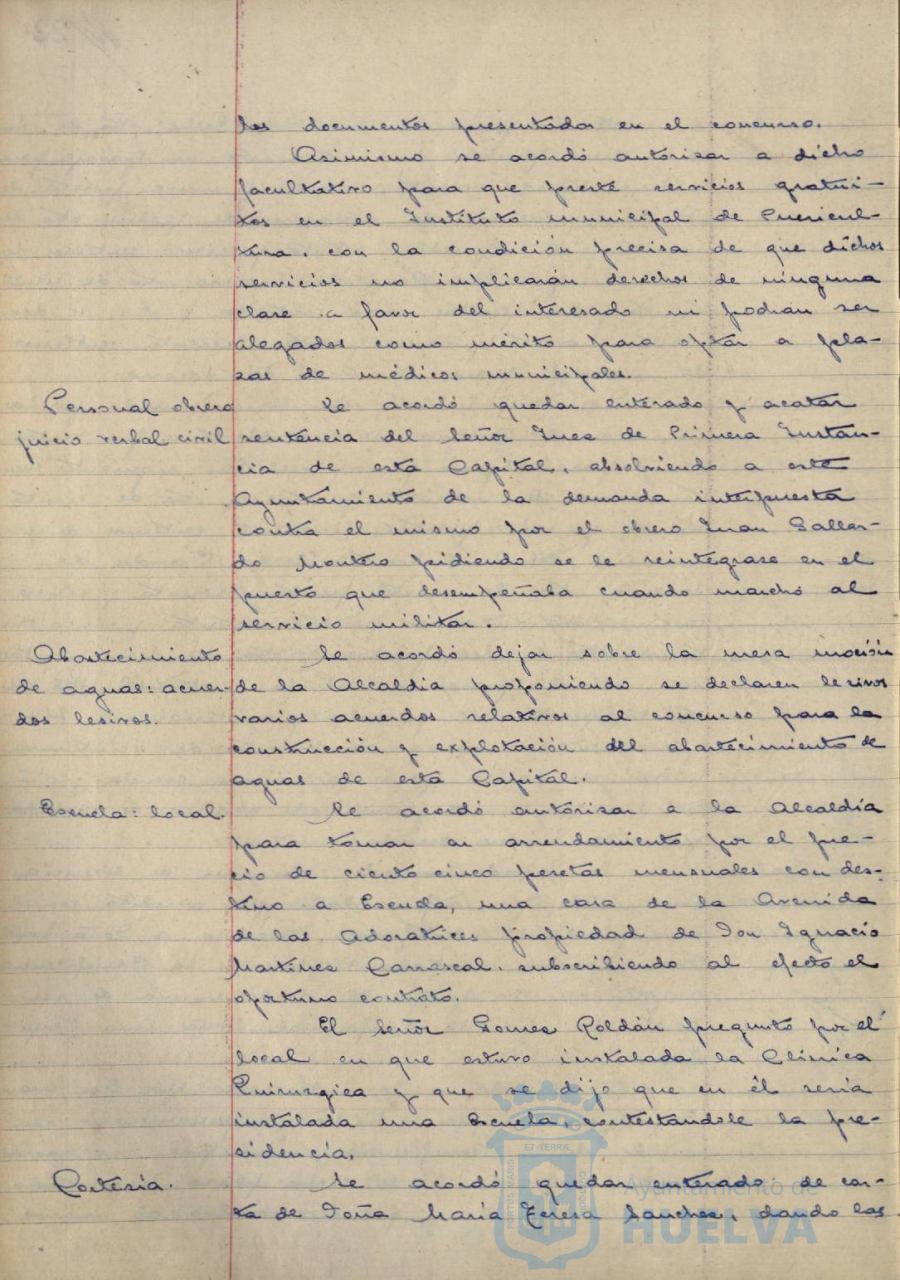 los documentos presentados en el concurso.
Asimismo se acordó autorizar a dicho
facultativo para que preste servicios gratui-
tos en el Instituto municipal de Puericul-
tura, con la condición precisa de que dichos
servicios no implicarán derechos de ninguna
clase a favor del interesado ni podrán ser
alegados como mérito para optar a pla-
zas de médicos municipales.
Personal obrero
juicio verbal civil
Se acordó quedar enterado y acatar
sentencia del Señor Juez de Primera Instan-
cia de esta Capital, absolviendo a este
Ayuntamiento de la demanda interpuesta
contra el mismo por el obrero Juan Gallar-
do Montero pidiendo se le reintegrase en el
puesto que desempeñaba cuando marchó al
servicio militar.
Abastecimiento
de aguas: acuer-
dos lesivos.
Se acordó dejar sobre la mesa moción
de la Alcaldía proponiendo se declaren lesivos
varios acuerdos relativos al concurso para la
construcción y explotación del abastecimiento de
aguas de esta Capital.
Escuela: local.
Se acordó autorizar a la Alcaldía
para tomar en arrendamiento por el pre-
cio de ciento cinco pesetas mensuales con des-
tino a Escuela, una casa de la Avenida
de las Adoratrices propiedad de Don Ignacio
Martínez Carrascal, subscribiendo al efecto el
oportuno contrato.
El Señor Gomez Roldán preguntó por el
local en que estuvo instalada la Clínica
Quirurgica y que se dijo que en él seria
instalada una Escuela, contestandole la pre-
sidencia.
Cortesía.
Se acordó quedar enterado de car-
ta de Doña María Teresa Sanchez, dando las
Ayuntamiento de
HUELVA